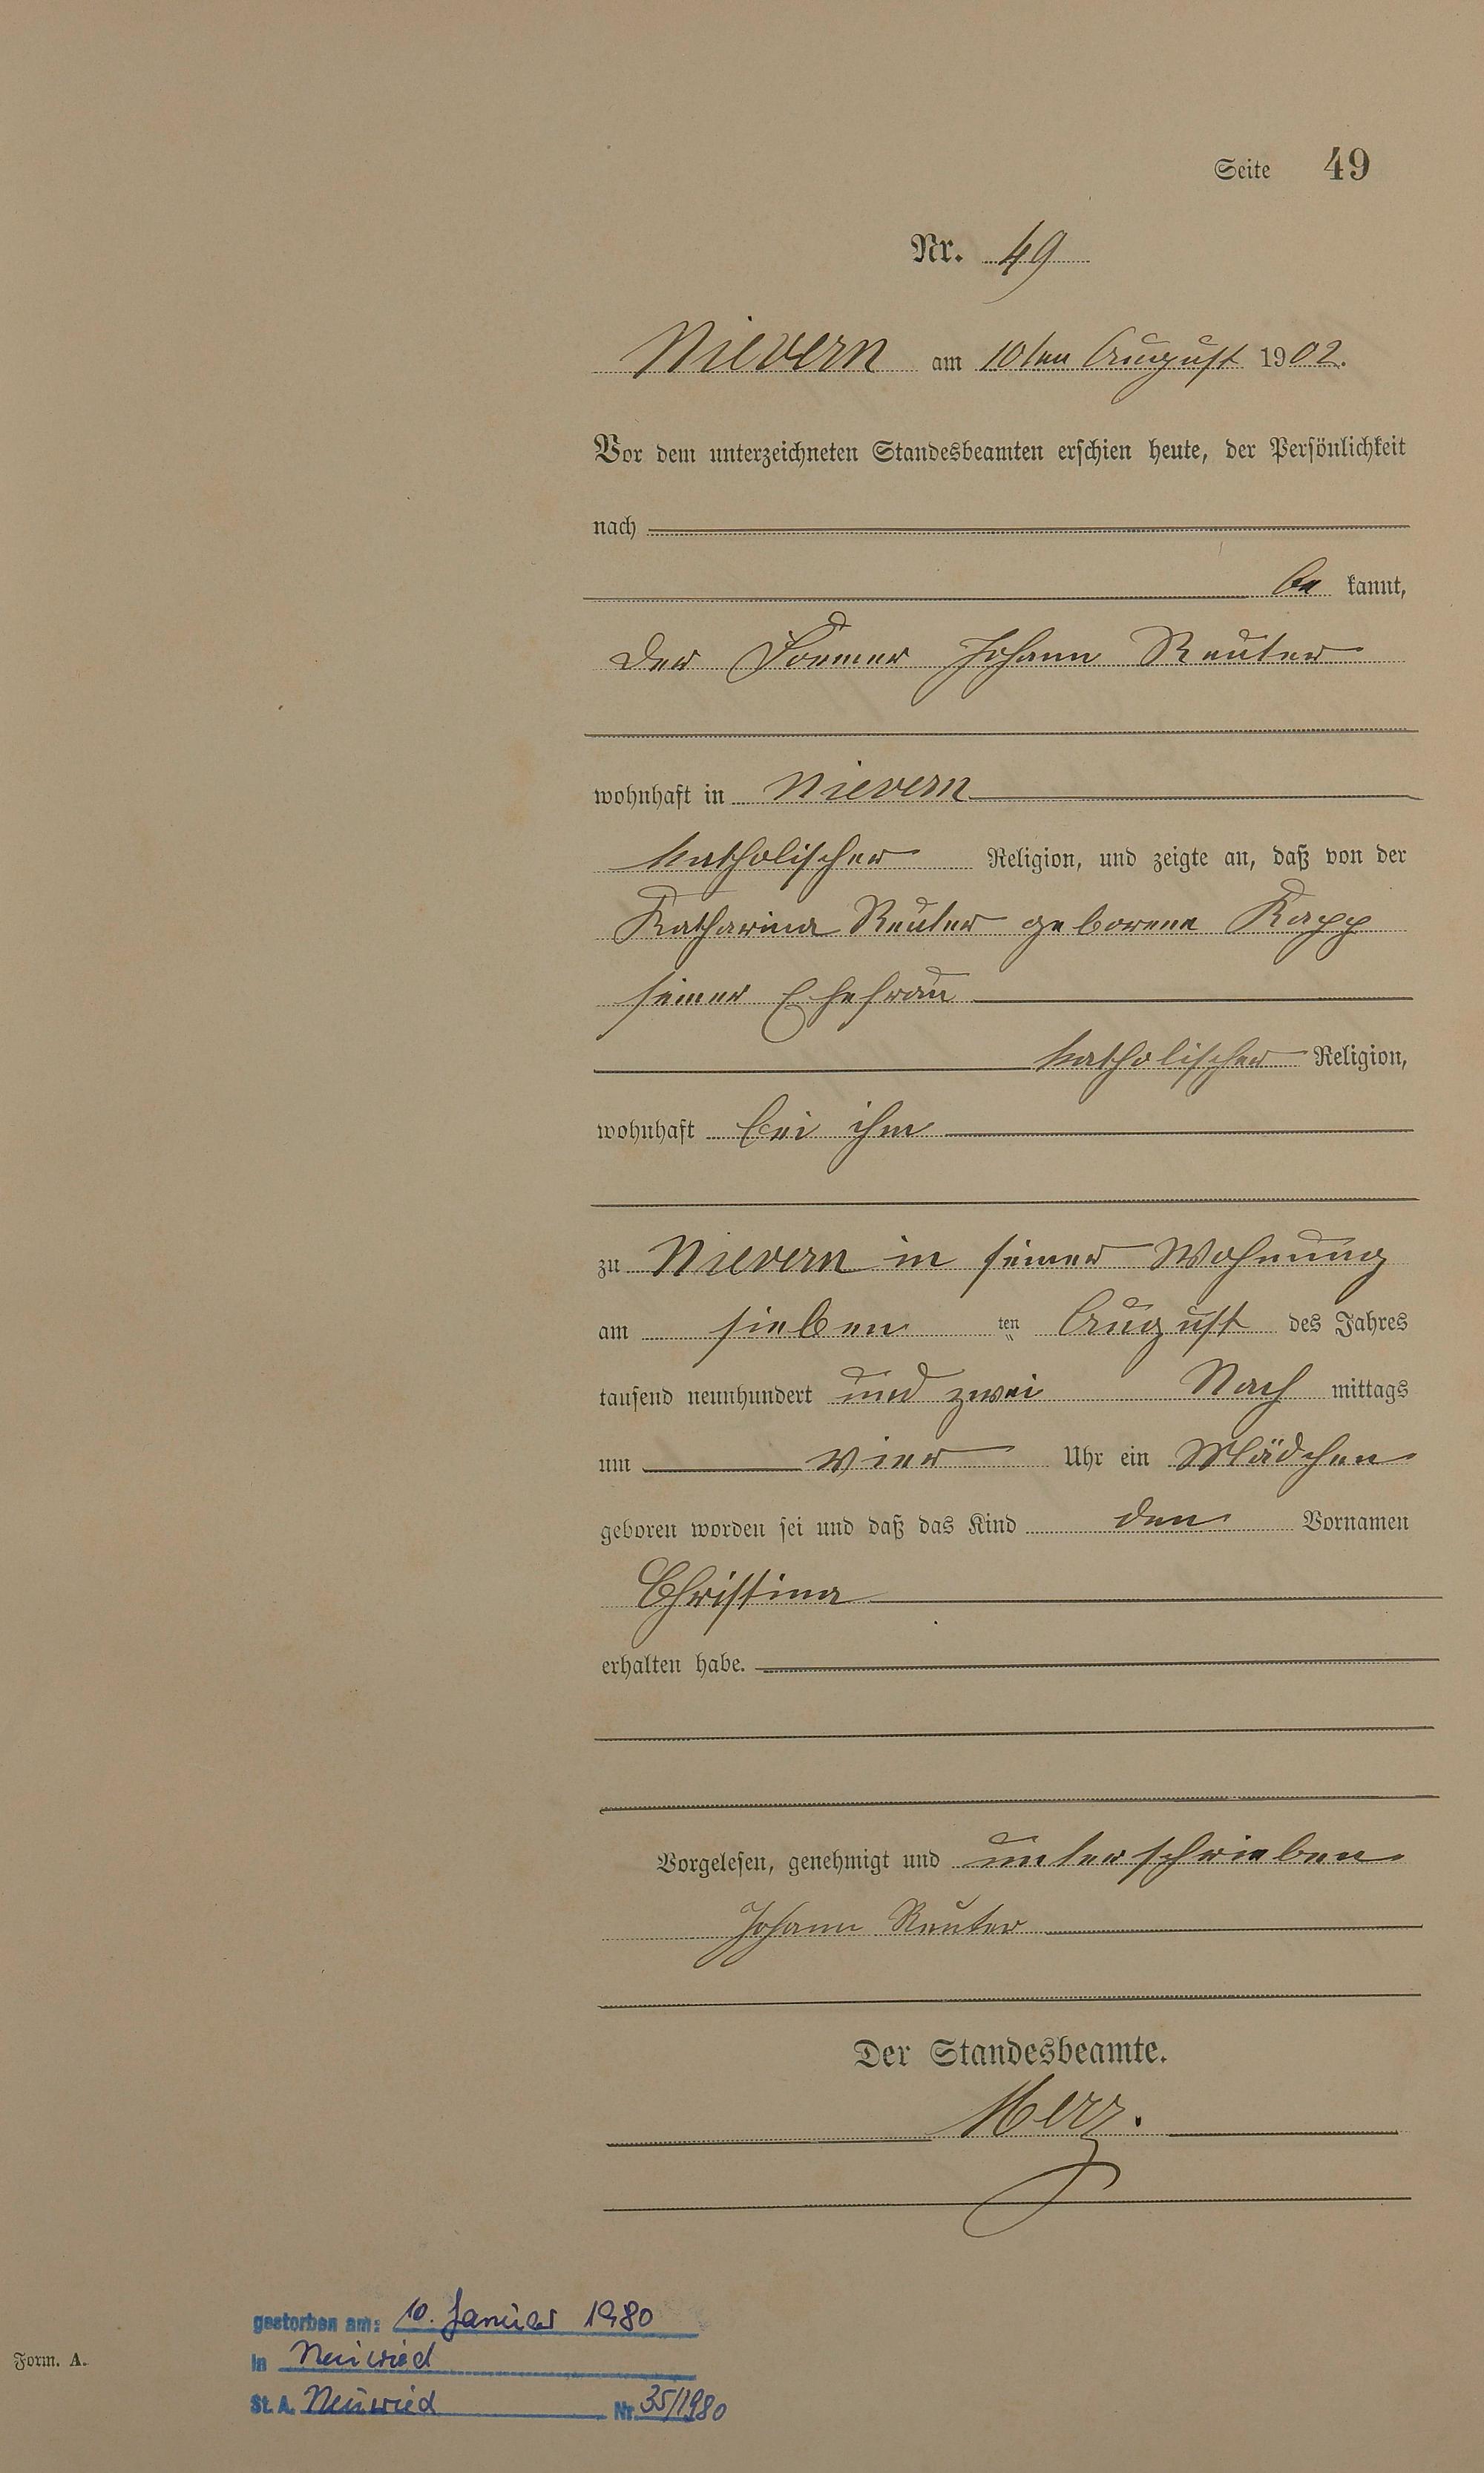 Seite 49
Nr. 49
Nievern am 10ten August 1902.
Vor dem unterzeichneten Standesbeamten erschien heute, der Persönlichkeit
nach
be kannt,
der Former Johann Reuter
wohnhaft in Nievern
katholischer Religion, und zeigte an, daß von der
Katharina Reuter geborene Kapp
seiner Ehefrau
katholischer Religion,
wohnhaft bei ihm
zu Nievern in seiner Wohnung
am sieben ten August des Jahres
tausend neunhundert und zwei Nach mittags
um vier Uhr ein Mädchen
geboren worden sei und daß das Kind den Vornamen
Christina
erhalten habe.
Vorgelesen, genehmigt und unterschrieben
Johann Reuter
Der Standesbeamte.
Merz.
gestorben am: 10. Januar 1980
in Neuwied
St. A. Neuwied Nr. 35/1980
Form. A.